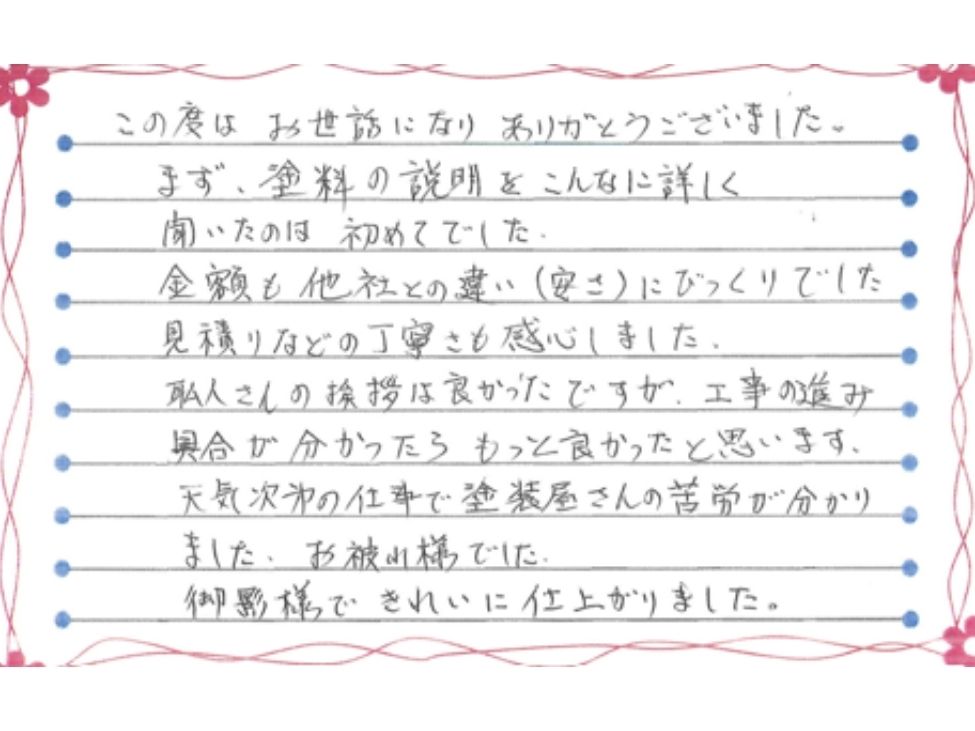 この度は お世話になり ありがとうございました。
まず、塗料の説明をこんなに詳しく
聞いたのは 初めてでした.
金額も他社との違い(安さ)にびっくりでした
見積りなどの丁寧さも感心しました.
職人さんの挨拶は良かったですが、工事の進み
具合が分かったら もっと良かったと思います、
天気次第の仕事で塗装屋さんの苦労が分かり
ました、お被れ様でした.
御影様で きれいに仕上がりました。